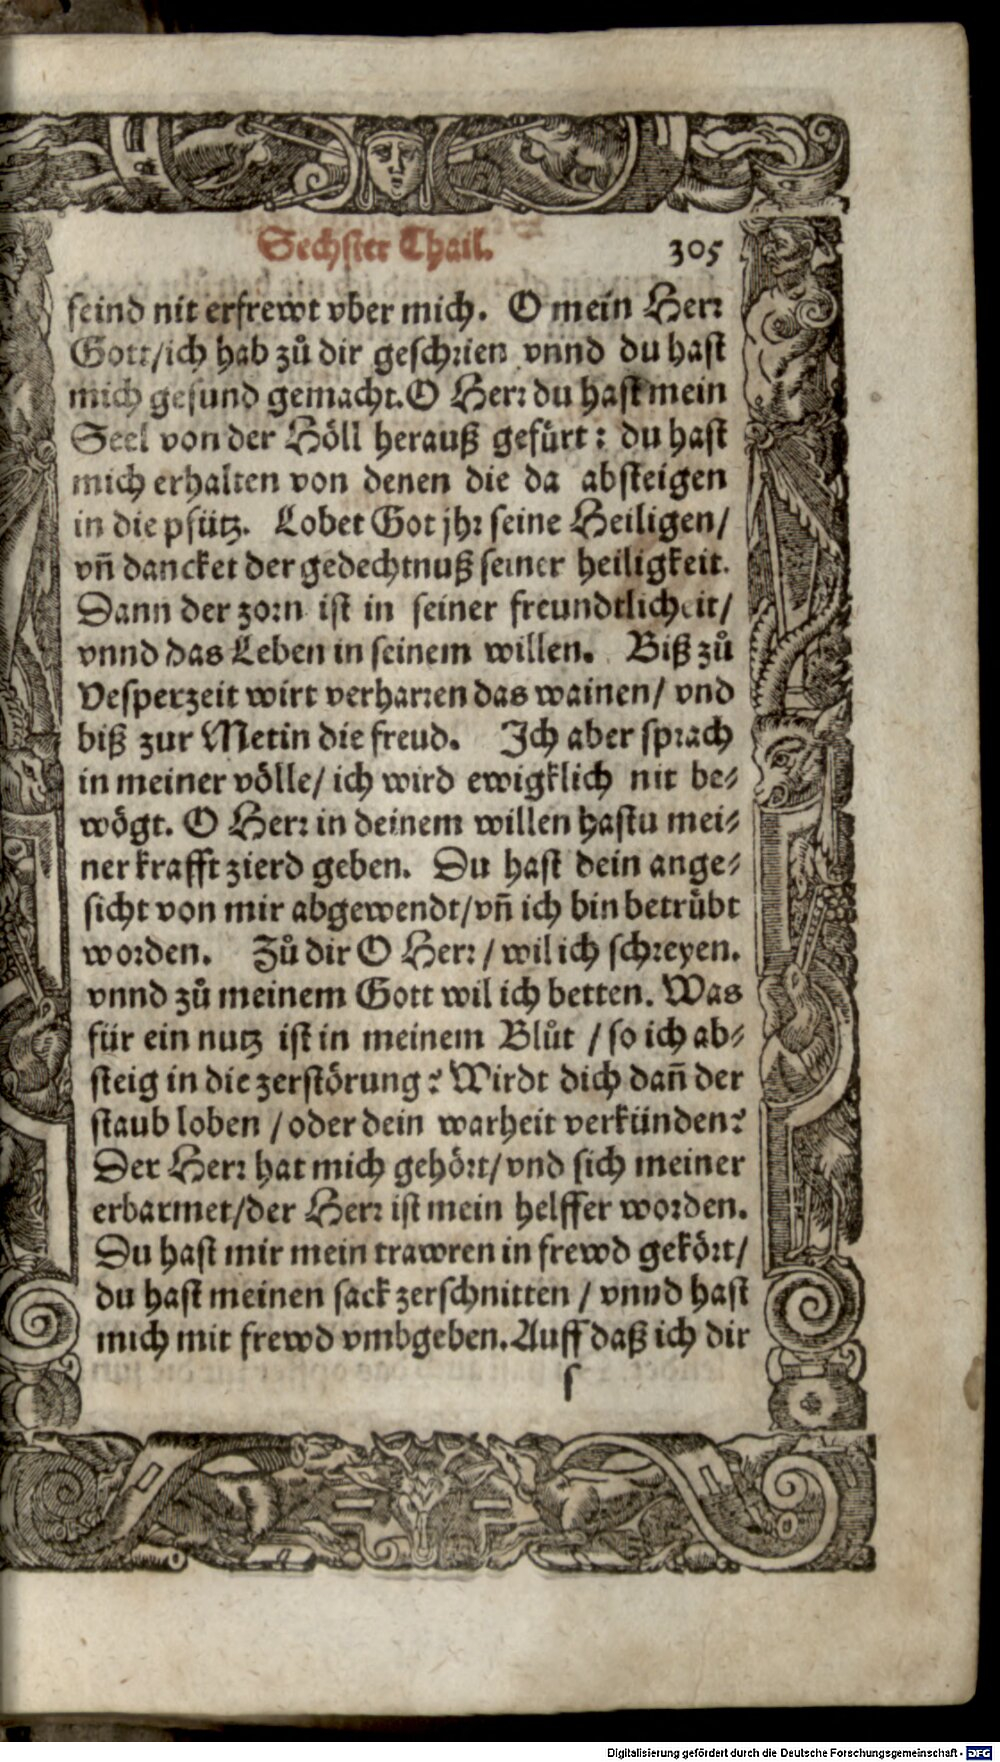 Sechster Thail. 305
seind nit erfrewt vber mich. O mein Herr
Gott/ich hab zů dir geschrien vnnd du hast
mich gesund gemacht. O Herr du hast mein
Seel von der Höll herauß gefürt: du hast
mich erhalten von denen die da absteigen
in die pfütz. Lobet Got jhr seine Heiligen/
vñ dancket der gedechtnuß seiner heiligkeit.
Dann der zorn ist in seiner freundtlicheit/
vnnd das Leben in seinem willen. Biß zů
Vesperzeit wirt verharren das wainen/ vnd
biß zur Metin die freud. Ich aber sprach
in meiner völle/ ich wird ewigklich nit be⸗
wögt. O Herr in deinem willen hastu mei⸗
ner krafft zierd geben. Du hast dein ange⸗
sicht von mir abgewendt/vñ ich bin betrübt
worden. Zů dir O Herr/ wil ich schreyen.
vnnd zů meinem Gott wil ich betten. Was
für ein nutz ist in meinem Blůt / so ich ab⸗
steig in die zerstörung? Wirdt dich dañ der
staub loben / oder dein warheit verkünden?
Der Herr hat mich gehört/vnd sich meiner
erbarmet/der Herr ist mein helffer worden.
Du hast mir mein trawren in frewd gekört/
du hast meinen sack zerschnitten / vnnd hast
mich mit frewd vmbgeben. Auff daß ich dir
s
Digitalisierung gefördert durch die Deutsche Forschungsgemeinschaft - DFG